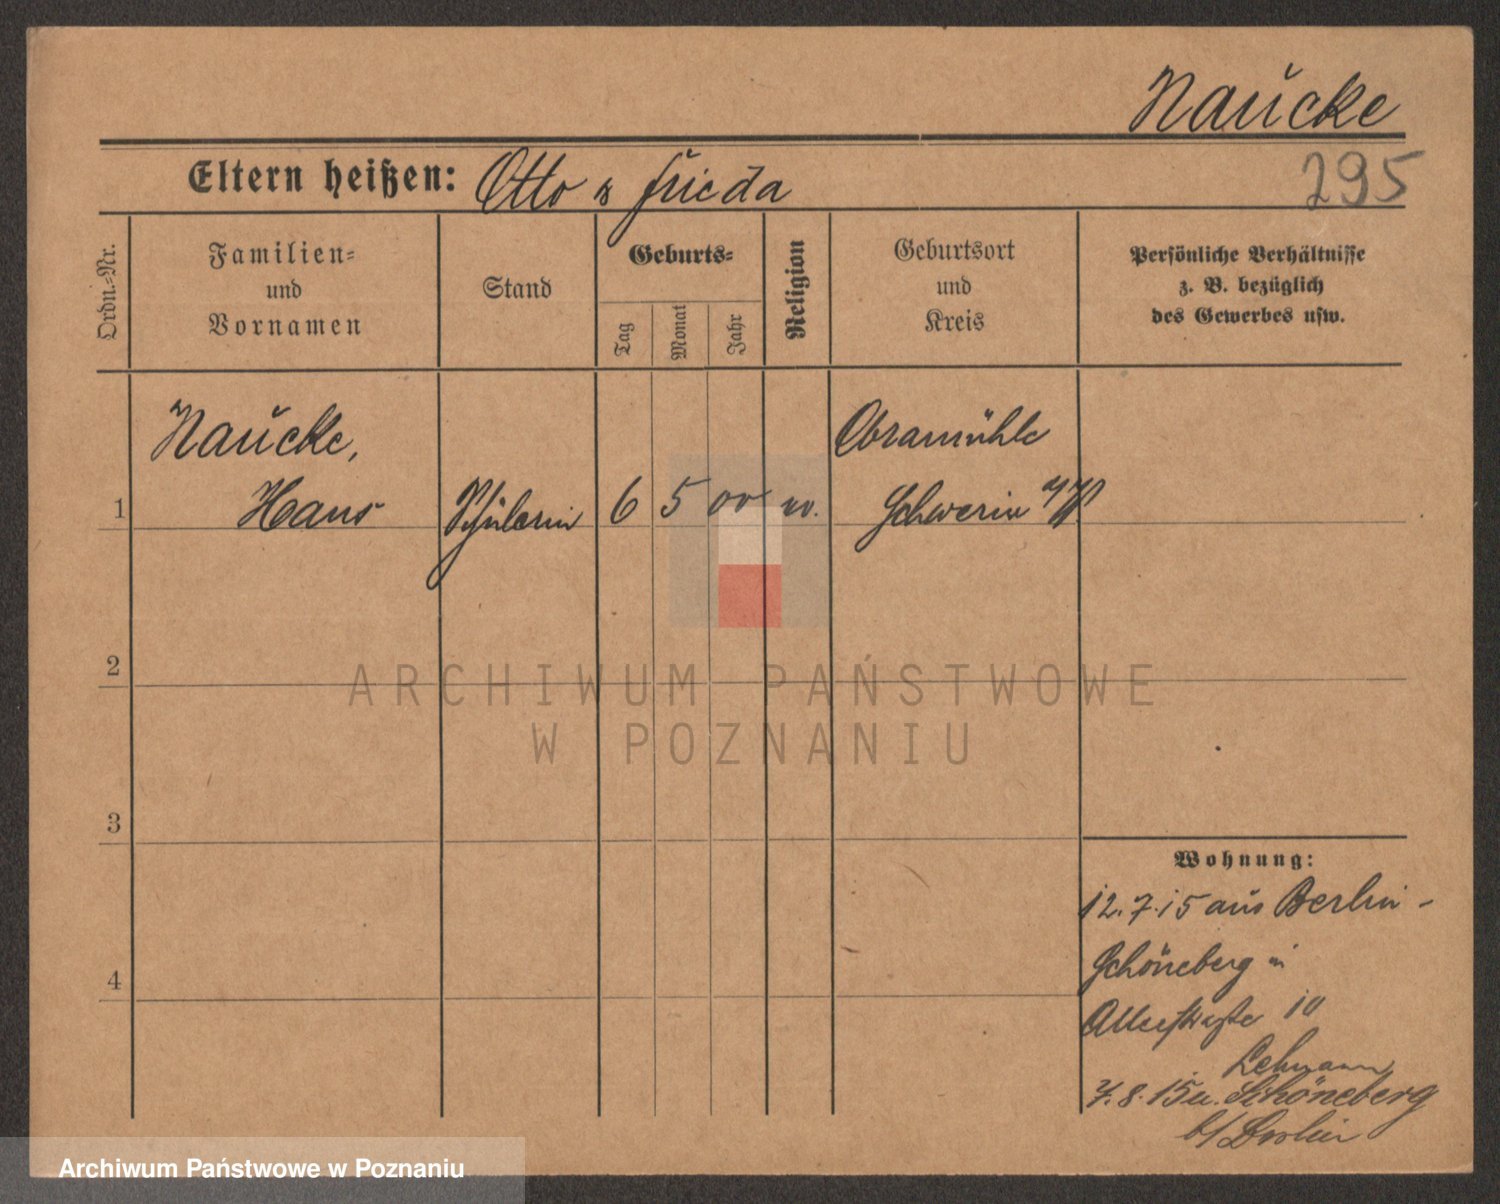 Naucke
Eltern heißen: Otto & Frieda
295
Ordn.-Nr.
Familien-
und
Vornamen
Stand
Geburts-
Tag
Monat
Jahr
Religion
Geburtsort
und
Kreis
Persönliche Verhältnisse
z. B. bezüglich
des Gewerbes usw.
Naucke,
Hans
1
Schülerin
6
5
00
ev.
Obramühle
Schwerin a/W.
2
ARCHIWUM PAŃSTWOWE
W POZNANIU
3
4
Wohnung:
12.7.15 aus Berlin-
Schöneberg in
Alleestraße 10
Lehmann
7.8.15 n. Schöneberg
b/ Berlin
Archiwum Państwowe w Poznaniu